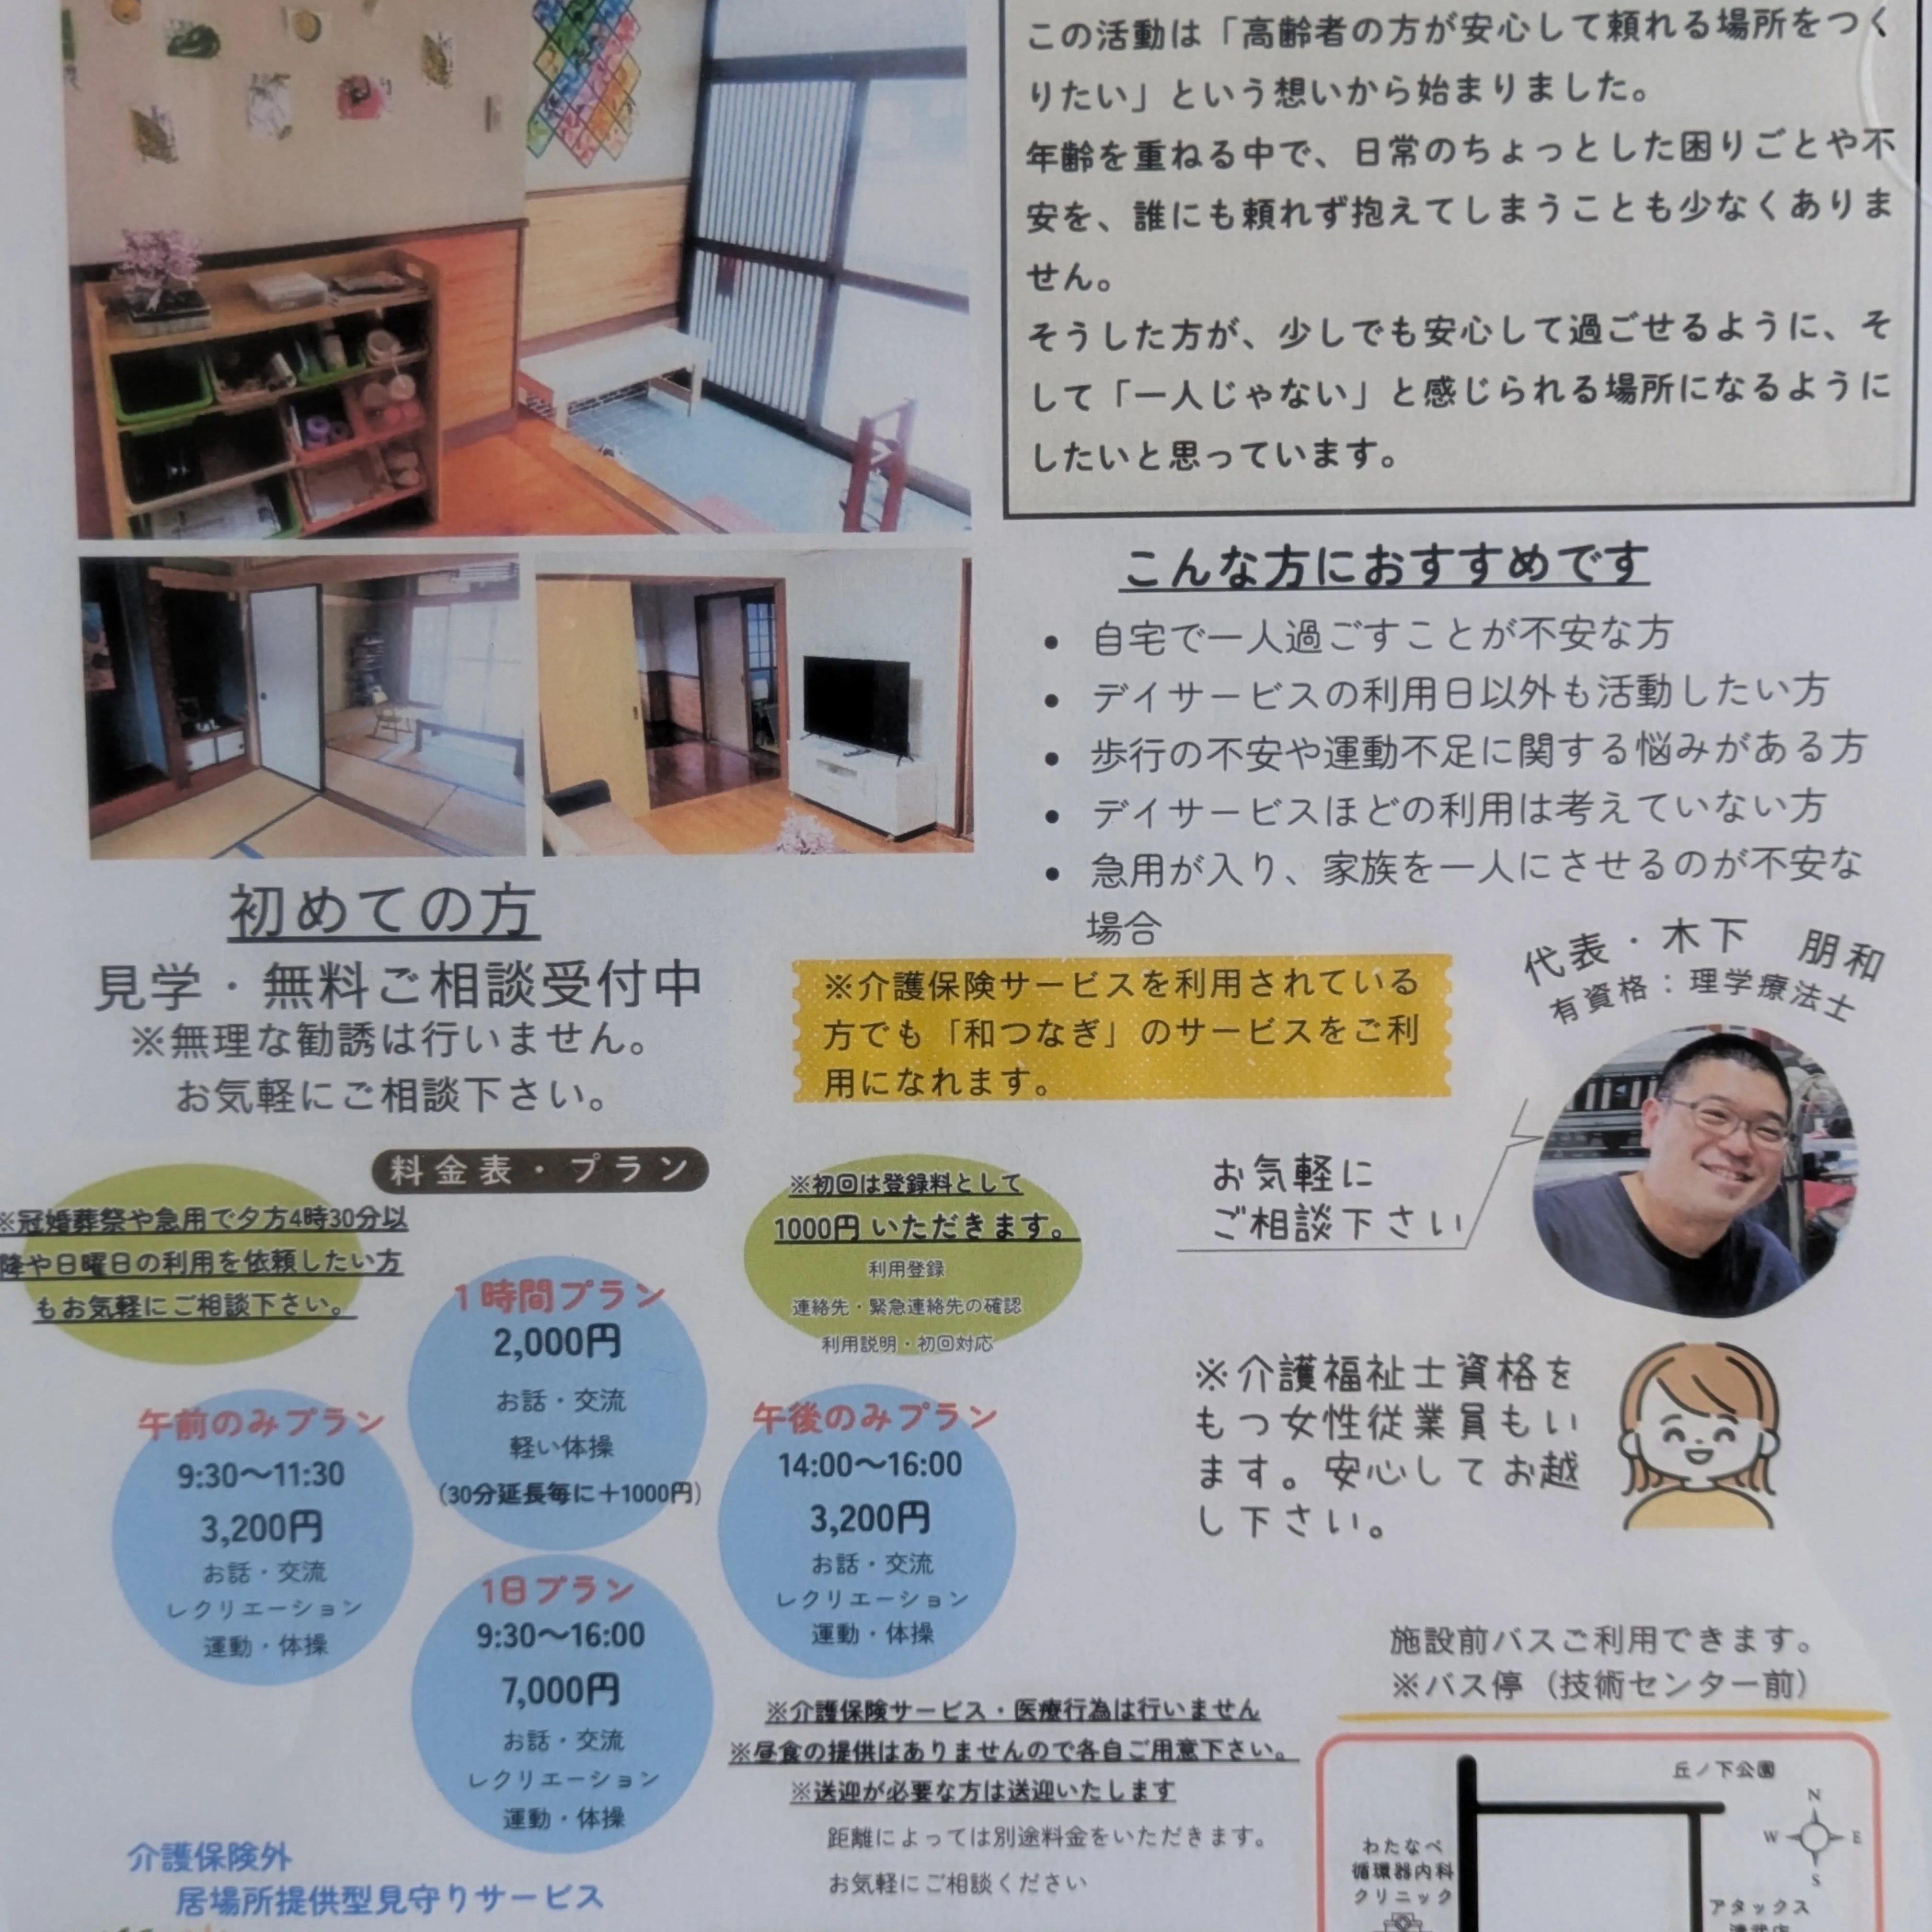 この活動は「高齢者の方が安心して頼れる場所をつく
りたい」という想いから始まりました。
年齢を重ねる中で、日常のちょっとした困りごとや不
安を、誰にも頼れず抱えてしまうことも少なくありま
せん。
そうした方が、少しでも安心して過ごせるように、そ
して「一人じゃない」と感じられる場所になるように
したいと思っています。
こんな方におすすめです
• 自宅で一人過ごすことが不安な方
• デイサービスの利用日以外も活動したい方
• 歩行の不安や運動不足に関する悩みがある方
• デイサービスほどの利用は考えていない方
• 急用が入り、家族を一人にさせるのが不安な
場合
初めての方
見学・無料ご相談受付中
※無理な勧誘は行いません。
お気軽にご相談下さい。
※介護保険サービスを利用されている
方でも「和つなぎ」のサービスをご利
用になれます。
代表・木下 朋和
有資格：理学療法士
お気軽に
ご相談下さい
料金表・プラン
※冠婚葬祭や急用で夕方4時30分以
降や日曜日の利用を依頼したい方
もお気軽にご相談下さい。
※初回は登録料として
1000円いただきます。
利用登録
連絡先・緊急連絡先の確認
利用説明・初回対応
1時間プラン
2,000円
お話・交流
軽い体操
(30分延長毎に＋1000円)
午前のみプラン
9:30～11:30
3,200円
お話・交流
レクリエーション
運動・体操
午後のみプラン
14:00～16:00
3,200円
お話・交流
レクリエーション
運動・体操
1日プラン
9:30～16:00
7,000円
お話・交流
レクリエーション
運動・体操
※介護福祉士資格を
もつ女性従業員もい
ます。安心してお越
し下さい。
※介護保険サービス・医療行為は行いません
※昼食の提供はありませんので各自ご用意下さい。
※送迎が必要な方は送迎いたします
距離によっては別途料金をいただきます。
お気軽にご相談ください
介護保険外
居場所提供型見守りサービス
施設前バスご利用できます。
※バス停（技術センター前）
丘ノ下公園
N
W
E
S
わたなべ
循環器内科
クリニック
アタックス